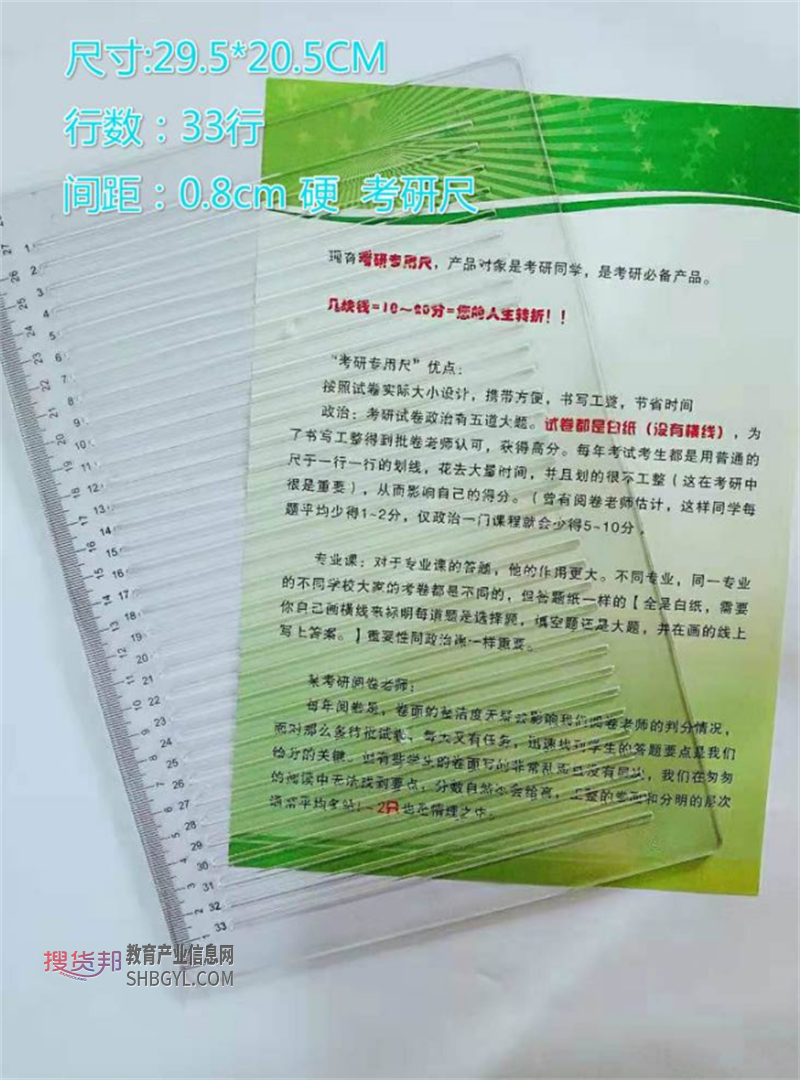 尺寸:29.5*20.5CM
行数：33行
间距：0.8cm 硬 考研尺
现有考研专用尺，产品对象是考研同学，是考研必备产品。
几块钱=10～20分=您的人生转折！！
“考研专用尺”优点：
按照试卷实际大小设计，携带方便，书写工整，节省时间
政治：考研试卷政治有五道大题。试卷都是白纸（没有横线），为
了书写工整得到批卷老师认可，获得高分。每年考试考生都是用普通的
尺子一行一行的划线，花去大量时间，并且划的很不工整（这在考研中
很是重要），从而影响自己的得分。（曾有阅卷老师估计，这样同学每
题平均少得1-2分，仅政治一门课程就会少得5-10分，
专业课：对于专业课的答题，他的作用更大。不同专业，同一专业
的不同学校大家的考卷都是不同的，但答题纸一样的【全是白纸，需要
你自己画横线来标明每道题是选择题，填空题还是大题，并在画的线上
写上答案。】重要性同政治课一样重要。
某考研阅卷老师：
每年阅卷是，卷面的整洁度无疑会影响我们阅卷老师的判分情况，
面对那么多待批试卷、每天又有任务，迅速找到学生的答题要点是我们
给分的关键。但有些学生的卷面写的非常乱而且没有层次，我们在匆匆
的阅读中无法找到要点，分数自然不会给高，工整的卷面和分明的层次
通常平均多给1-2分也在情理之中。
27
26
25
24
23
22
21
20
19
18
17
16
15
14
13
12
11
10
9
8
7
6
5
4
3
2
1
1
2
3
4
5
6
7
8
9
10
11
12
13
14
15
16
17
18
19
20
21
22
23
24
25
26
27
28
29
30
31
32
33
搜货邦
教育产业信息网
SHBGYL.COM